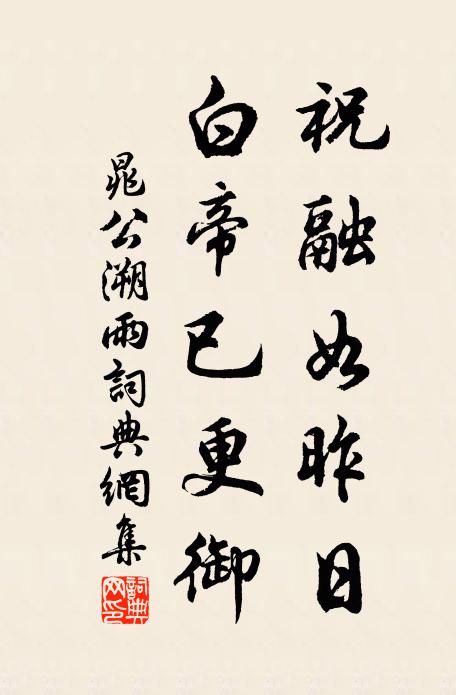 祝融如昨日
白帝已更御
晁公溯雨詞典網集
詞典网印